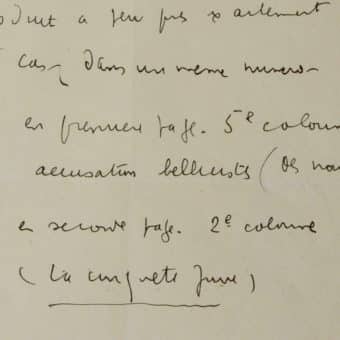 oduit a peu près exactement
cas, dans un même numéro
en première page. 5e colonn
accusation bellicistes (Des nou
en seconde page. 2e colonne
(La cinquète Juive)